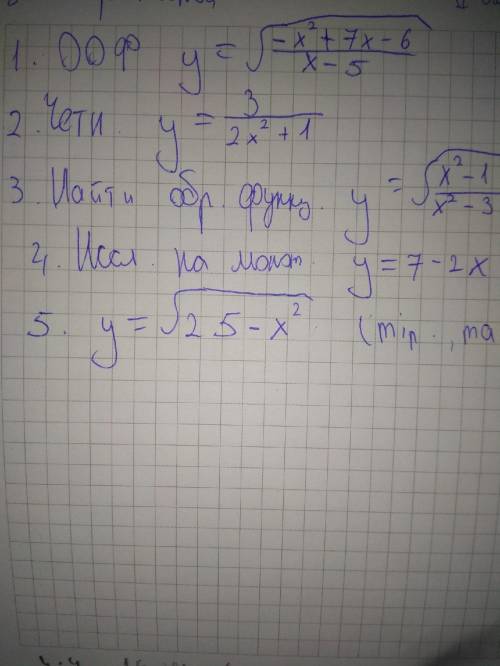 1. ООФ y = √((-x² + 7x - 6)/(x - 5))
2. Четн. y = 3/(2x² + 1)
3. Найти обр. функц. y = √((x² - 1)/(x² - 3
4. Иссл. на монот. y = 7 - 2x
5. y = √(25 - x²) (min., ma